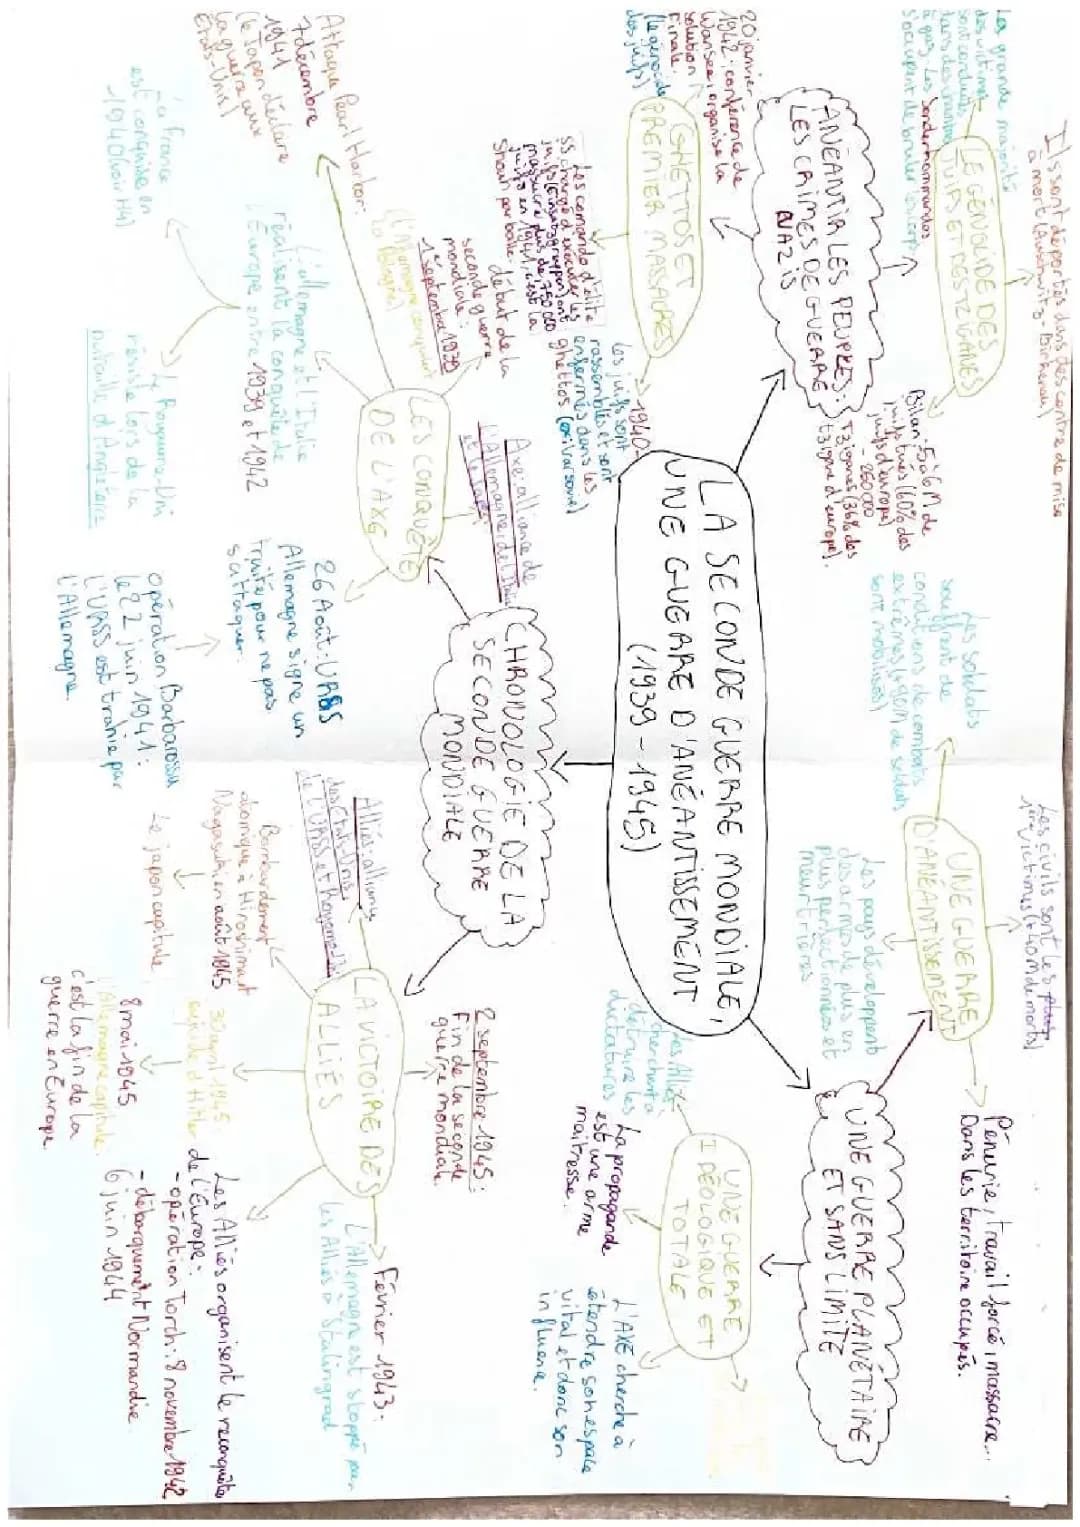 LA SECONDE GUERRE MONDIALE,
UNE GUERRE D'ANÉANTISSEMENT
(1939 - 1945)
ANÉANTIR LES PEUPLES:
LES CRIMES DE GUERRE
NAZIS
LE GÉNOCIDE DES
JUIFS ET DES TZIGANES
Ils sont déportés dans des centre de mise
à mort (Auschwitz-Birkenau)
La grande majorité
des victimes
sont conduites
dans des chambres
à gaz. Les Sonderkommandos
s'occupent de bruler les corps
Bilan: 5 à 6 M de
juifs tués (60% des
juifs d'europe)
- 250 000
Tziganes (36% des
tzigane d'europe).
GHETTOS ET
PREMIER MASSACRES
20 janvier
1942: conférence de
Wansee: organise la
solution
Finale.
(le génocide
des juifs)
Les comando d'élite
SS chargé d'executer les
juifs (Einsatzgruppen) ont
massacré plus de 750 000
juifs en 1941, c'est la
Shoah par balle.
1940
Les juifs sont
rassemblés et sont
enfermés dans les
ghettos
CHRONOLOGIE DE LA
SECONDE GUERRE
MONDIALE
LES CONQUÊTE
DE L'AXE
Axe: alliance de
l'Allemagne, de l'Italie
et le Japon
début de la
seconde guerre
mondiale:
1 septembre 1939
(l'Allemagne conquiert
la Pologne)
Attaque Pearl Harbor:
7 décembre
1941
(le Japon déclare
la guerre aux
États-Unis)
l'allemagne et l'Italie
réalisent la conquête de
l'Europe entre 1939 et 1942
La France
est conquise en
1940 (voir H4)
Le Royaume-Uni
résiste lors de la
bataille d'Angleterre
26 Août: URSS
Allemagne signe un
traité pour ne pas
s'attaquer.
opération Barbarossa
le 22 juin 1941:
L'URSS est trahie par
l'Allemagne.
LA VICTOIRE DES
ALLIÉS
Alliés: alliance
des États-Unis
le L'URSS et Royaume-Uni
Bombardement
atomique à Hiroshima et
Nagasaki en août 1945
Le japon capitule
30 avril 1945:
suicide d'Hitler
8 mai 1945
l'Allemagne capitule.
c'est la fin de la
guerre en Europe
2 septembre 1945:
Fin de la seconde
guerre mondiale.
Février 1943:
L'Allemagne est stoppé par
les Alliés à Stalingrad
Les Alliés organisent le reconquête
de l'Europe:
- opération Torch: 8 novembre 1942
- débarquement Normandie
6 juin 1944
UNE GUERRE PLANÉTAIRE
ET SANS LIMITE
UNE GUERRE
D'ANÉANTISSEMENT
Les soldats
souffrent de
conditions de combats
extrêmes
sont mobilisés)
Les civils sont les
de morts)
Pénurie, travail forcé, massacre...
Dans les territoire occupés.
Les pays développent
des armes de plus en
plus perfectionnées et
meurtrières
UNE GUERRE
IDÉOLOGIQUE ET
TOTALE
Les Alliés
cherchent à
détruire les
dictatures
La propagande
est une arme
maîtresse.
L'AXE cherche à
étendre son espace
vital et donc son
influence.